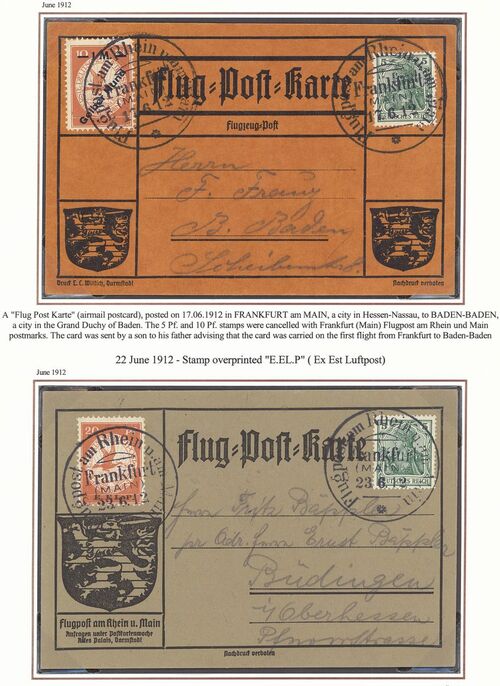 June 1912
10
Gelber Hund
Flugpost am Rhein u. am Main
Frankfurt
(MAIN)
17.6.12
Flug-Post-Karte
Flugpost am Rhein u. am Main
Frankfurt
(MAIN)
17.6.12
Flugzeug-Post
Herrn
F. Franz
B. Baden
Druck L. C. Wittich, Darmstadt
Nachdruck verboten
A "Flug Post Karte" (airmail postcard), posted on 17.06.1912 in FRANKFURT am MAIN, a city in Hessen-Nassau, to BADEN-BADEN,
a city in the Grand Duchy of Baden. The 5 Pf. and 10 Pf. stamps were cancelled with Frankfurt (Main) Flugpost am Rhein und Main
postmarks. The card was sent by a son to his father advising that the card was carried on the first flight from Frankfurt to Baden-Baden
22 June 1912 - Stamp overprinted "E.EL.P" ( Ex Est Luftpost)
June 1912
20
Flugpost am Rhein u. am Main
Frankfurt
(MAIN)
23.6.12
Flug-Post-Karte
Flugpost am Rhein u. am Main
Frankfurt
(MAIN)
23.6.12
DEUTSCHES REICH
Herrn Fritz Bäppler
pr Adr. Herrn Ernst Bäppler
Büdingen
i/Oberhessen
Flugpost am Rhein u. Main
Anfragen unter Postkartenwoche
Altes Palais, Darmstadt
Nachdruck verboten